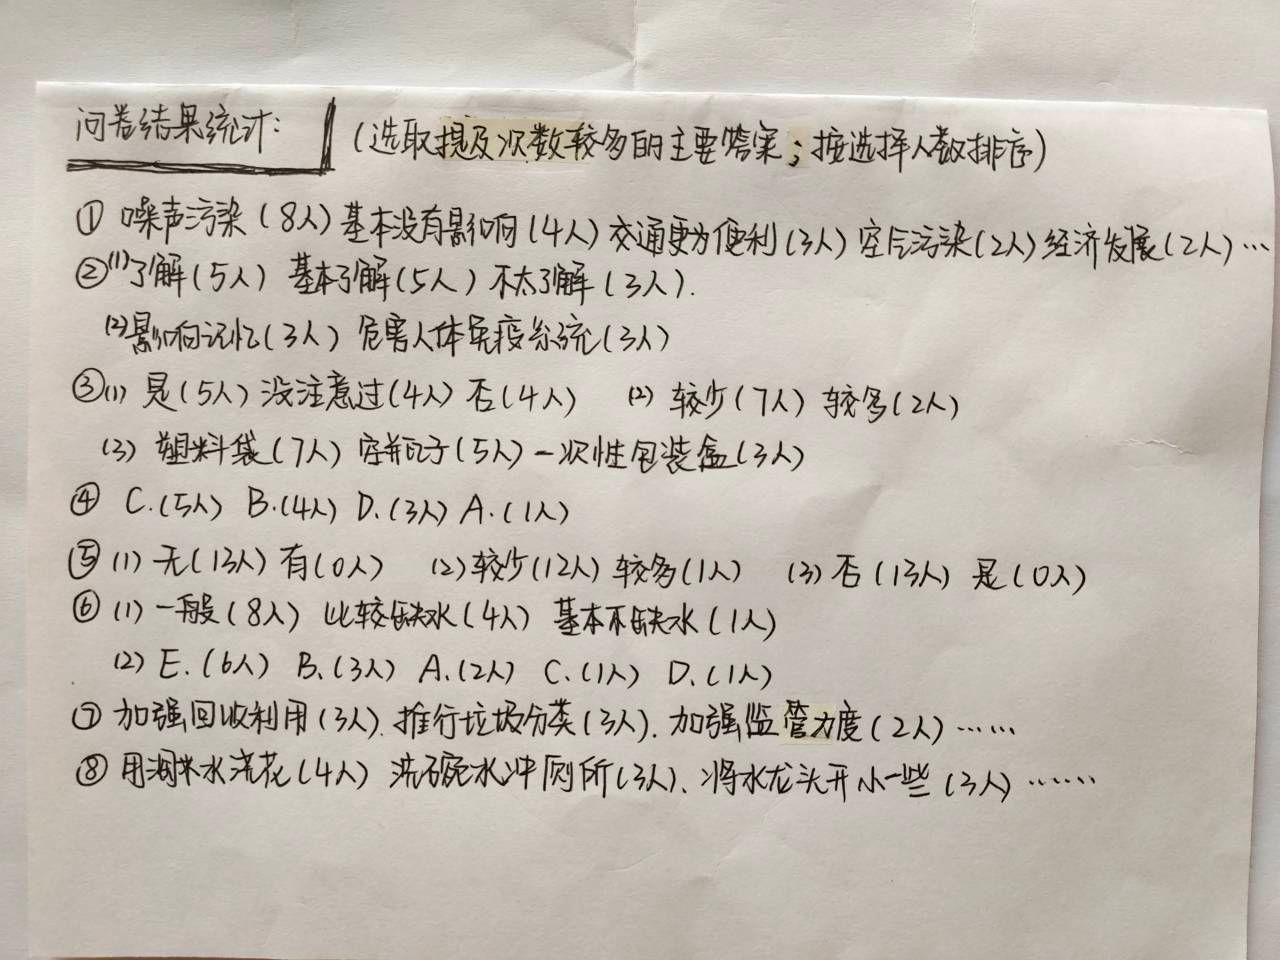 问卷结果统计: (选取提及次数较多的主要答案;按选择人数排序)
① 噪声污染(8人) 基本没有影响(4人) 交通更方便利(3人) 空气污染(2人) 经济发展(2人)…
②(1)了解(5人) 基本了解(5人) 不太了解(3人).
(2)影响记忆(3人) 危害人体免疫系统(3人)
③(1) 是(5人) 没注意过(4人) 否(4人) (2) 较少(7人) 较多(2人)
(3) 塑料袋(7人) 空瓶子(5人) 一次性包装盒(3人)
④ C.(5人) B.(4人) D.(3人) A.(1人)
⑤ (1) 无(13人) 有(0人) (2)较少(12人) 较多(1人) (3) 否(13人) 是(0人)
⑥ (1) 一般(8人) 比较缺水(4人) 基本不缺水(1人)
(2) E.(6人) B.(3人) A.(2人) C.(1人) D.(1人)
⑦ 加强回收利用(3人). 推行垃圾分类(3人). 加强监管力度(2人)……
⑧ 用淘米水浇花(4人) 洗碗水冲厕所(3人). 将水龙头开小一些(3人)……